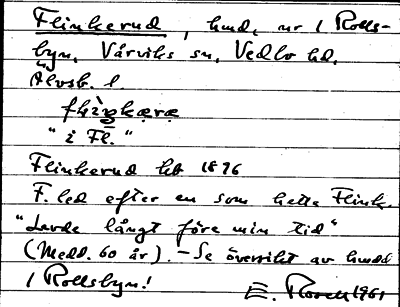 Flinkerud, hmd, nr 1 Rolls-
byn, Vårviks sn, Vedbo hd,
Älvsb. l.
flìŋkæræ
"i Fl."
Flinkerud hbt 1896
F. led efter en som hette Flink.
"Levde långt före min tid"
(Medd. 60 år). – Se översikt av hmd
1 Rollsbyn!
E. 1961